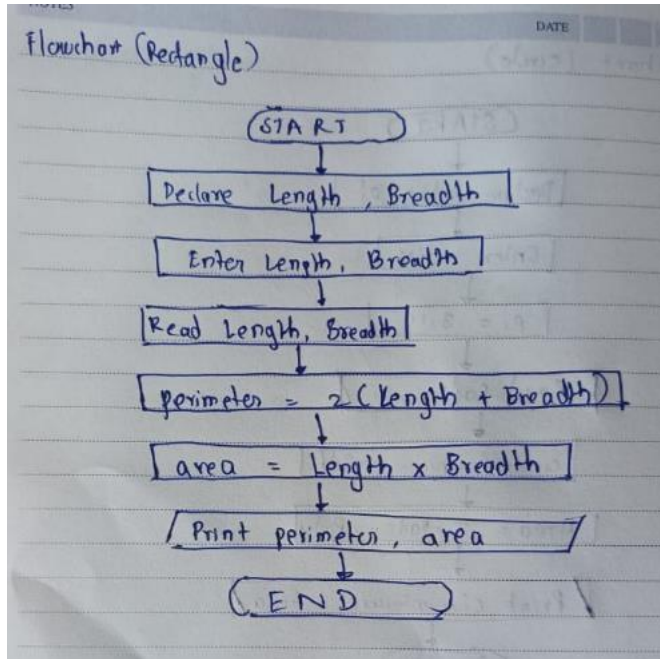 NOTES
DATE
Flowchart (Rectangle)
START
Declare Length, Breadth
Enter Length, Breadth
Read Length, Breadth
perimeter = 2(Length + Breadth)
area = Length x Breadth
Print perimeter, area
END